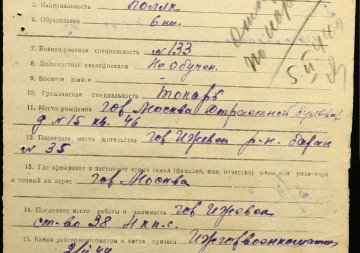 5. Национальность поляк
6. Образование 6 кл.
7. Военно-учетная специальность № 133
8. Должностная квалификация Не обучен.
9. Военное звание
10. Гражданская специальность Токарь
11. Место рождения гор. Москва Страстной бульвар
д № 15 кв. 46
12. Последнее место жительства гор Ижевск р-н. барак
№ 35
13. Где проживает в настоящее время семья (фамилия, имя, отчество) жены или родителей
и точный их адрес гор Москва
14. Последнее место работы и должность гор Ижевск
ст-во 38 Нкпс.
15. Каким райгорвоенкоматом и когда призван Ижгорвоенкоматом